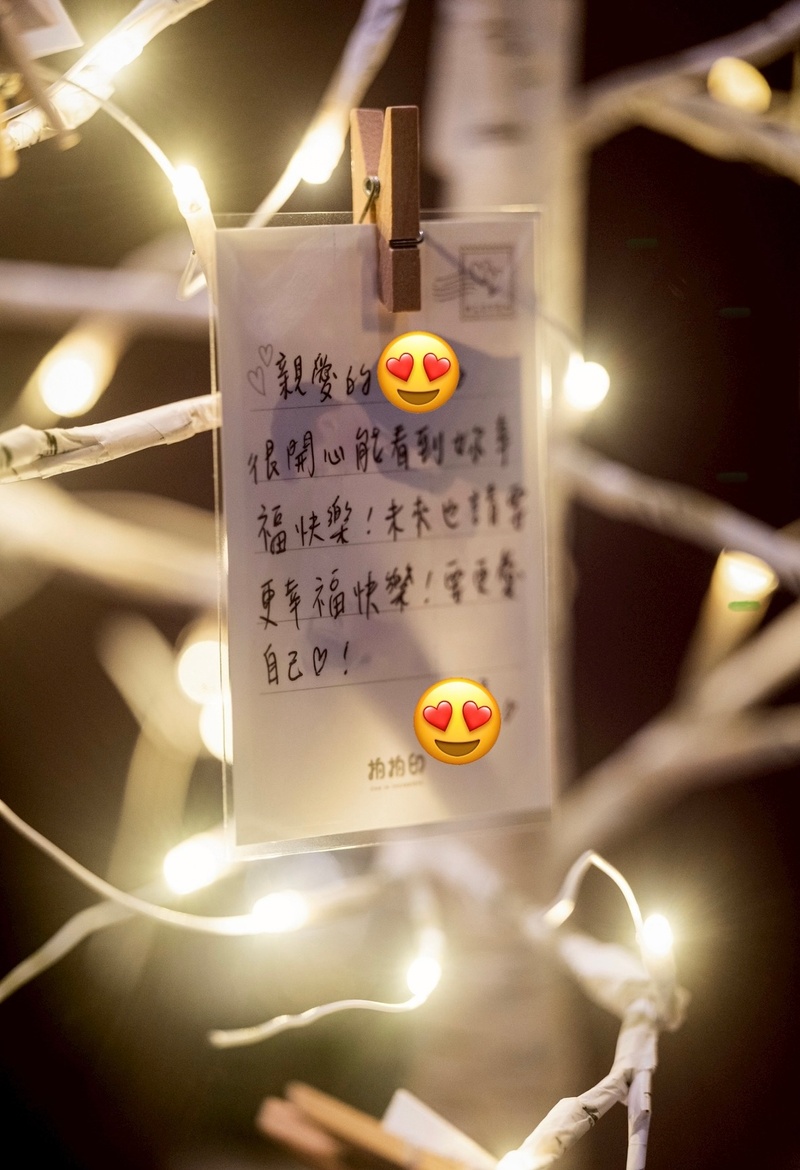 親愛的
很開心能看到妳幸
福快樂！未來也請要
更幸福快樂！要更愛
自己♡！
拍拍印